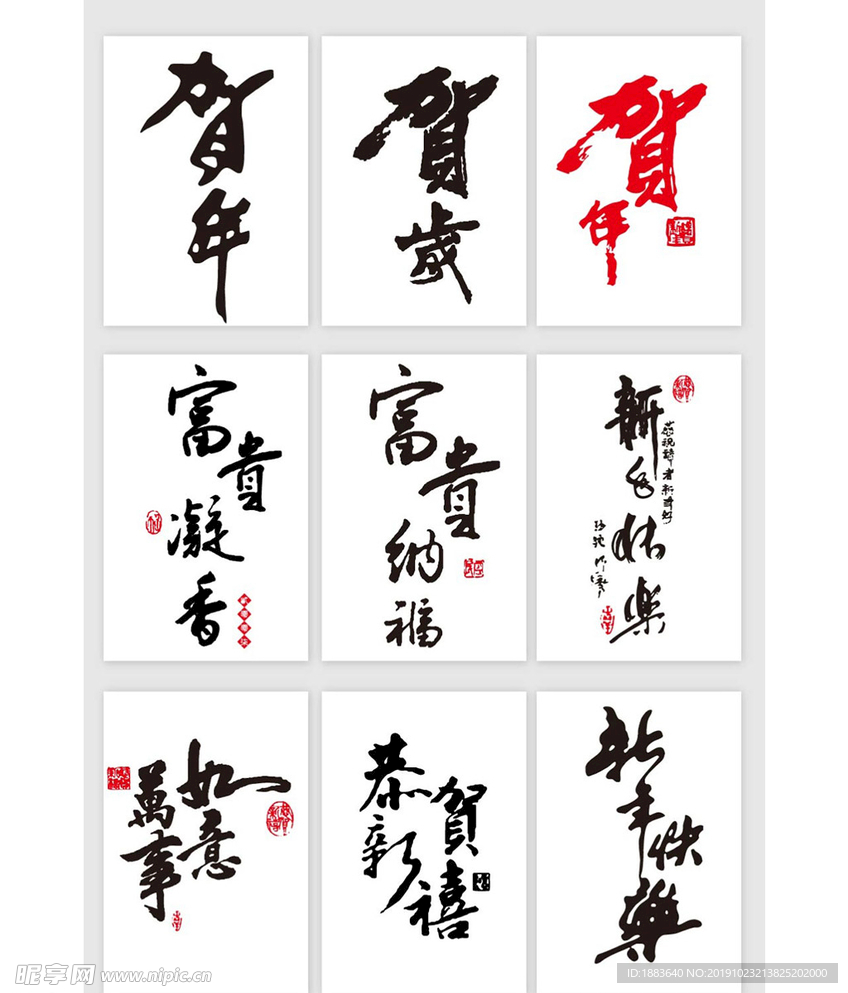 贺年
贺歲
贺年
富貴凝香
富貴納福
新年快樂
恭祝讀者新年好
萬事如意
恭賀新禧
新年快樂
昵享网 www.nipic.cn
ID:1883640 NO:20191023213825202000